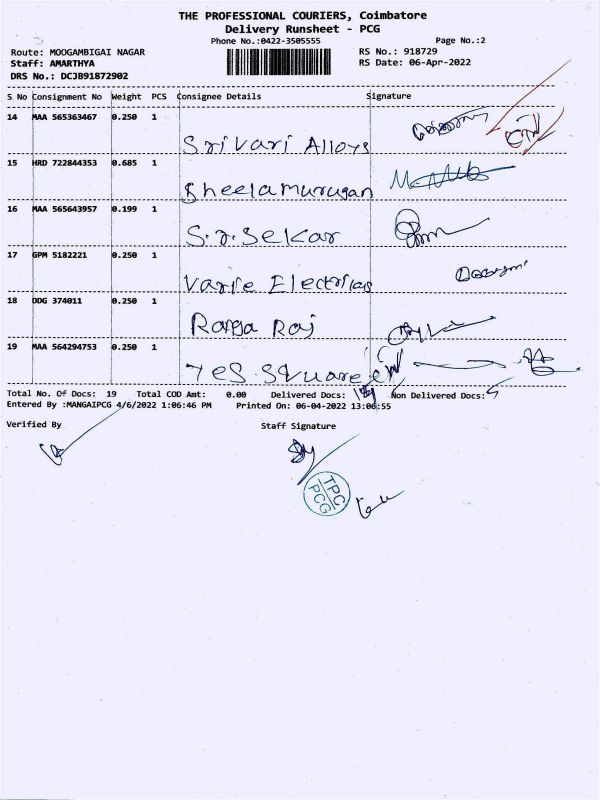 THE PROFESSIONAL COURIERS, Coimbatore
Delivery Runsheet - PCG
Phone No.:0422-3505555 Page No.:2
Route: MOOGAMBIGAI NAGAR RS No.: 918729
Staff: AMARTHYA RS Date: 06-Apr-2022
DRS No.: DCJB91872902
S No Consignment No Weight PCS Consignee Details Signature
14 MAA 565363467 0.250 1
Srivari Alloys
15 HRD 722844353 0.685 1
Sheelamurugan
16 MAA 565643957 0.199 1
S.r.Sekar
17 GPM 5182221 0.250 1
Varie Electricas
18 DDG 374011 0.250 1
Ranga Raj
19 MAA 564294753 0.250 1
Yes Square
Total No. Of Docs: 19 Total COD Amt: 0.00 Delivered Docs: Non Delivered Docs:
Entered By :MANGAIPCG 4/6/2022 1:06:46 PM Printed On: 06-04-2022 13:06:55
Verified By Staff Signature
TPC
PCG